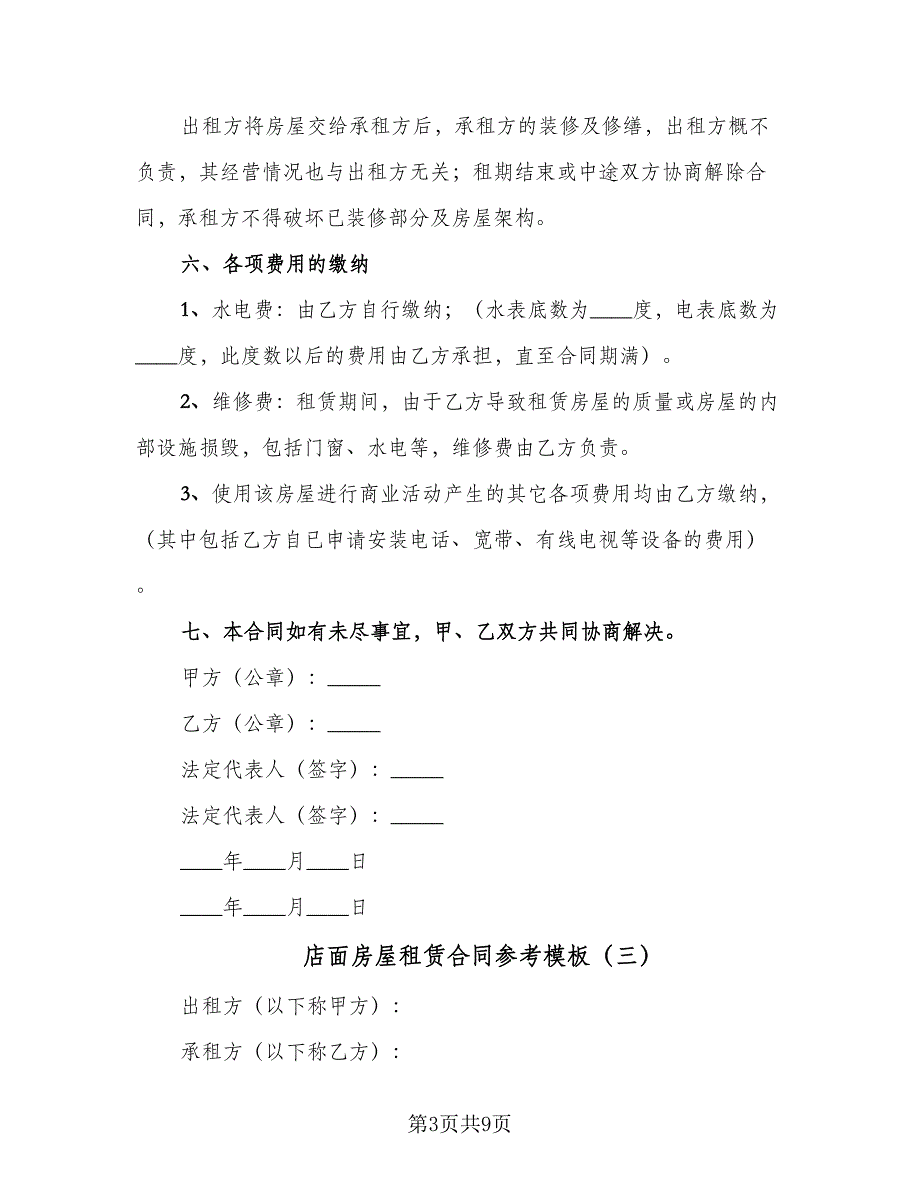 出租方将房屋交给承租方后，承租方的装修及修缮，出租方概不
负责，其经营情况也与出租方无关；租期结束或中途双方协商解除合
同，承租方不得破坏已装修部分及房屋架构。
六、各项费用的缴纳
1、水电费：由乙方自行缴纳；（水表底数为____度，电表底数为
____度，此度数以后的费用由乙方承担，直至合同期满）。
2、维修费：租赁期间，由于乙方导致租赁房屋的质量或房屋的内
部设施损毁，包括门窗、水电等，维修费由乙方负责。
3、使用该房屋进行商业活动产生的其它各项费用均由乙方缴纳，
（其中包括乙方自已申请安装电话、宽带、有线电视等设备的费用）
。
七、本合同如有未尽事宜，甲、乙双方共同协商解决。
甲方（公章）：_____
乙方（公章）：_____
法定代表人（签字）：_____
法定代表人（签字）：_____
____年____月____日
____年____月____日
店面房屋租赁合同参考模板（三）
出租方（以下称甲方）：
承租方（以下称乙方）：
第3页共9页